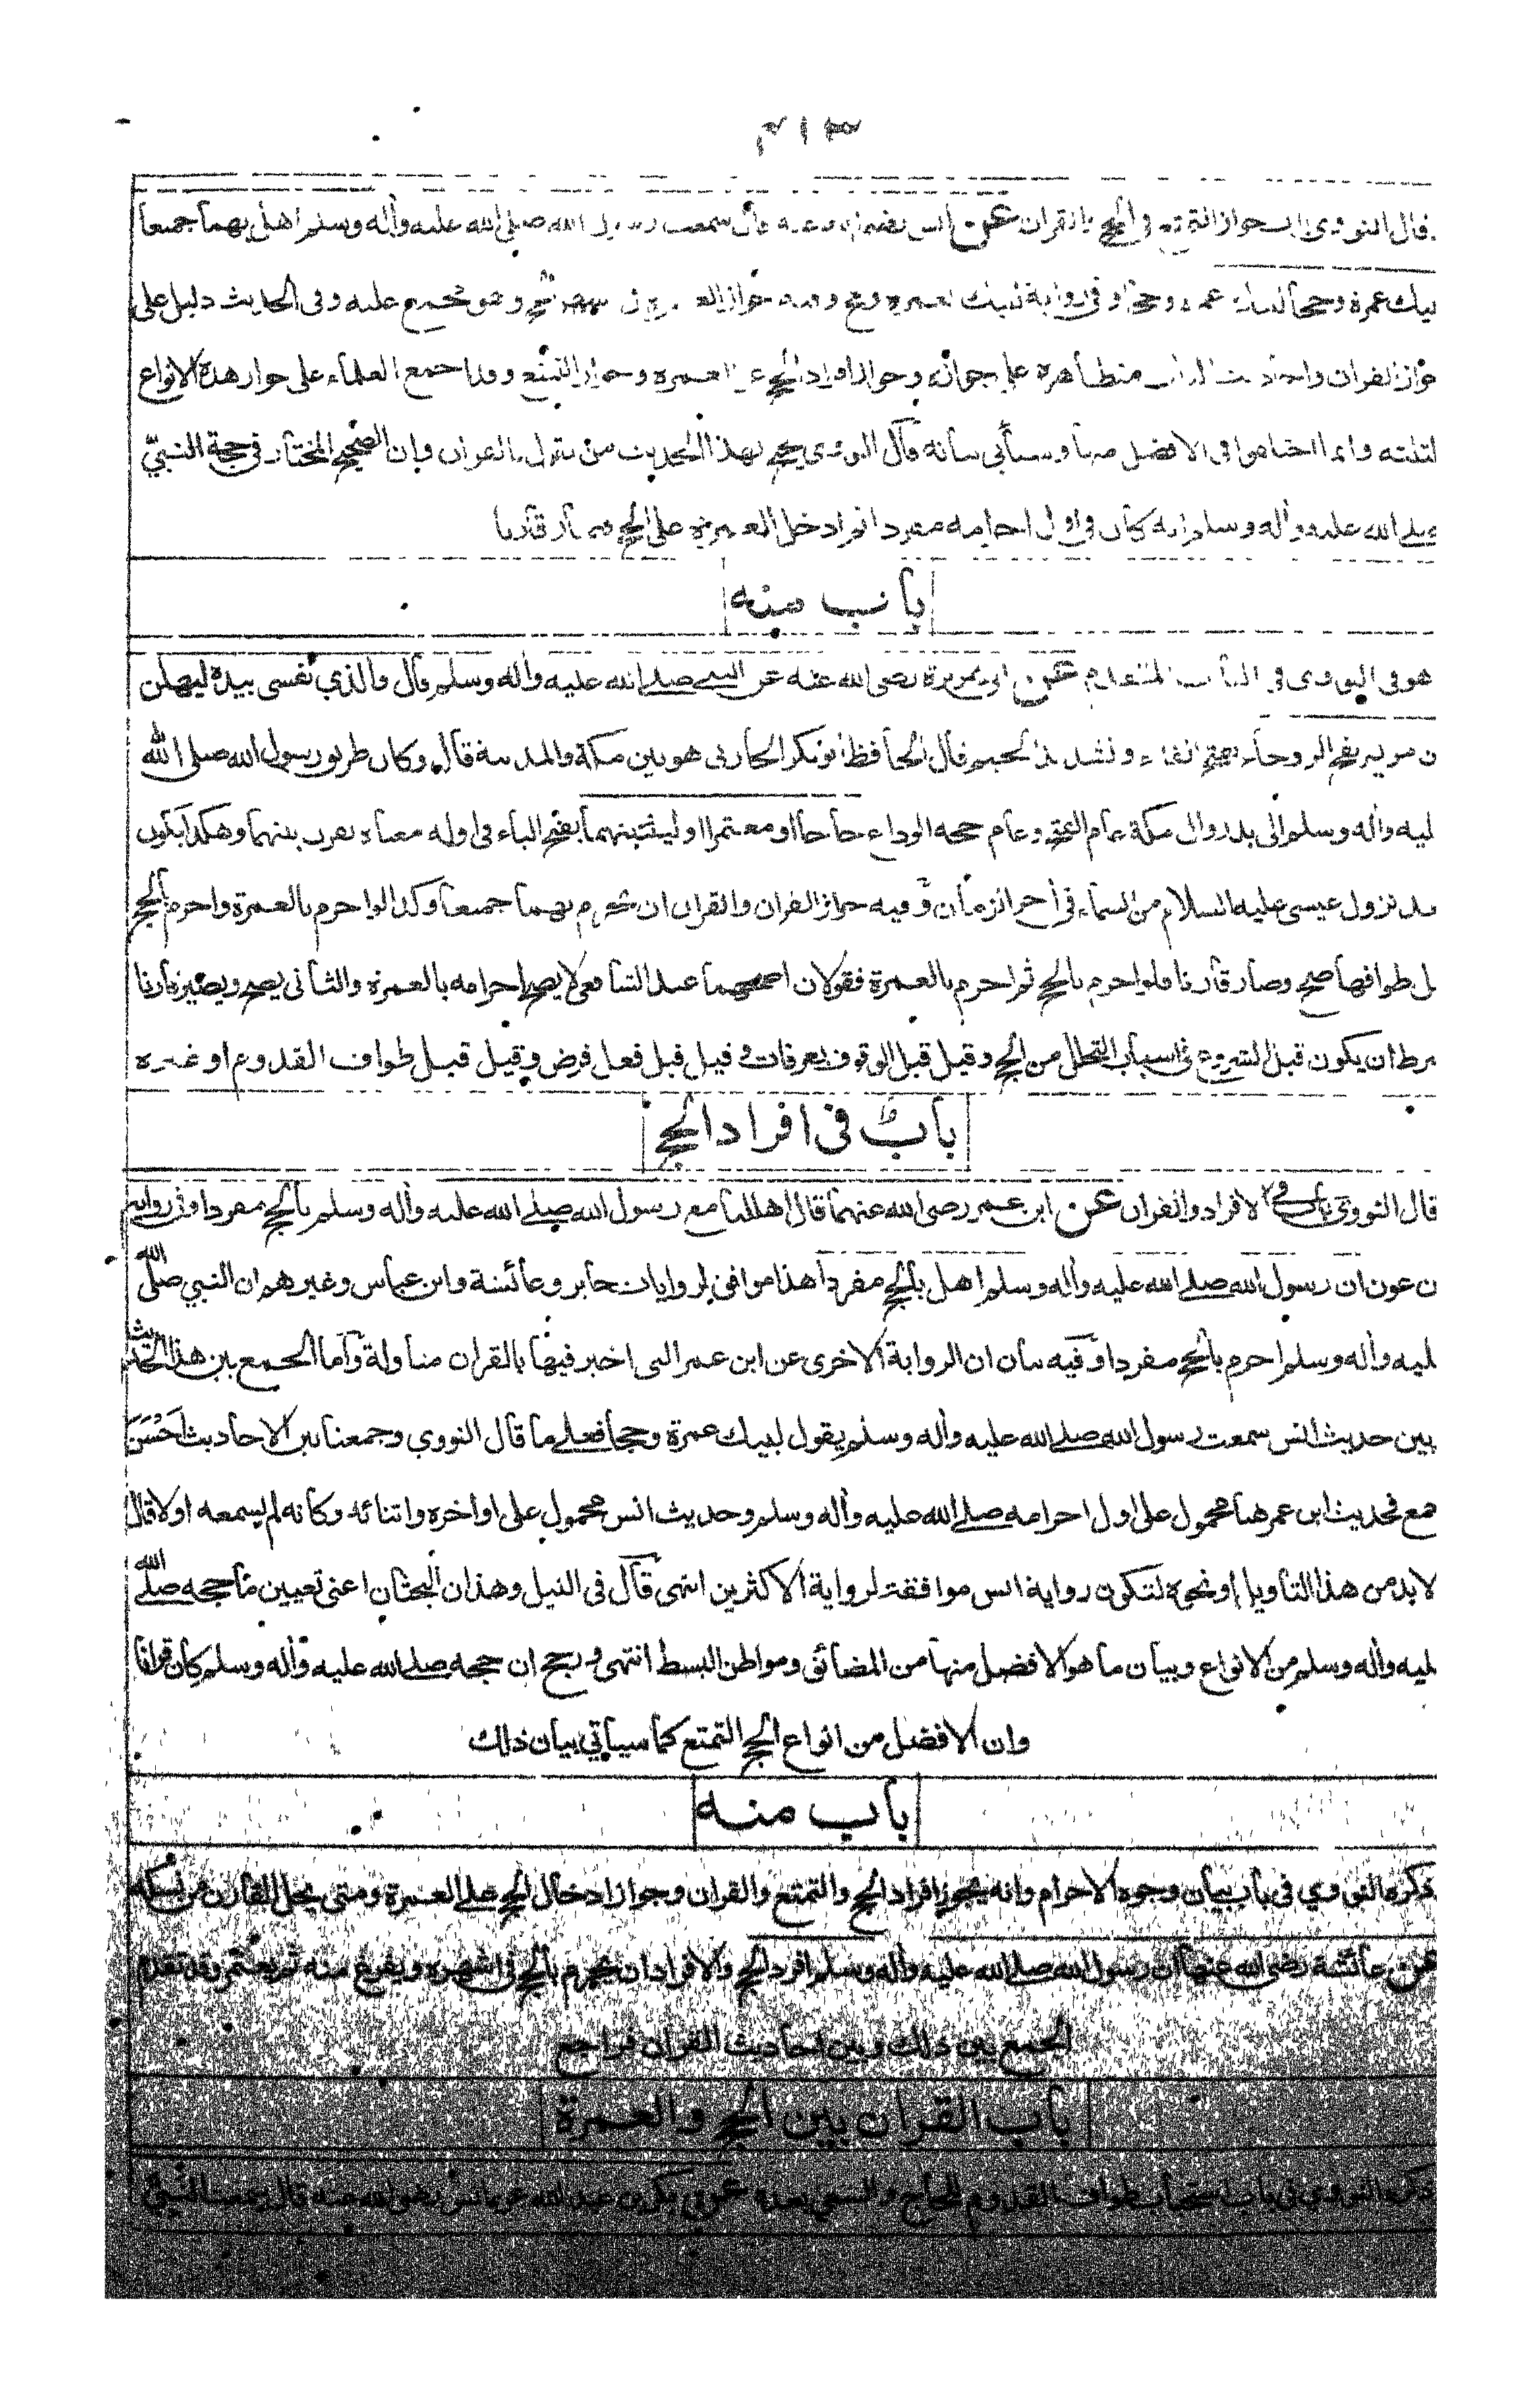 ٣١٣
قال النووى باب جواز التمتع فى الحج والقران عن انس رضى الله عنه قال سمعت رسول الله صلى الله عليه وأله وسلم اهل بهما جميعا
لبيك عمرة وحجا لبيك عمرة وحجا وفى رواية لبيك بعمرة وحج وفيه جواز وهو مجمع عليه وفى الحديث دليل على
جواز القران واحاديث الباب متظاهرة على جوازه وجواز افراد الحج عن العمرة وجواز التمتع وقد اجمع العلماء على جواز هذه الانواع
لثلثه وانما اختلفوا فى الافضل منها وسيأتى بيانه قال النووى يحتج بهذا الحديث من يقول بالقران وان الصحيح المختار فى حجة النبىّ
صلى الله عليه وأله وسلم انه كان فى اول احرامه مفردا ثم ادخل العمرة على الحج فصار قارنا
باب منه
هو فى النووى فى الباب المتقدم عن ابى هريرة رضى الله عنه عن النبى صلى الله عليه وأله وسلم قال والذي نفسى بيده ليهلن
ن مريم بفج الروحاء بفتح الفاء وتشديد الجيم قال الحافظ ابو بكر الحارثى هو بين مكة والمدينة قال وكان طريق رسول الله صلى الله
ليه وأله وسلم الى بدر والى مكة عام الفتح وعام حجه الوداع حاجا او معتمرا او ليثنينهما بفتح الياء فى اوله معناه يقرن بينهما وهكذا يكون
عد نزول عيسى عليه السلام من السماء فى أخر الزمان وفيه جواز القران والقران ان يحرم بهما جميعا وكذا لو احرم بالعمرة واحرم بالحج
بل طوافها صح وصار قارنا فلو احرم بالحج ثم احرم بالعمرة فقولان اصحهما عند الشافعى لا يصح احرامه بالعمرة والثانى يصح ويصير قارنا
شرط ان يكون قبل الشروع فى اسباب التحلل من الحج وقيل قبل الوقوف بعرفات وقيل قبل فعل فرض وقيل قبل طواف القدوم او غيره
باب فى افراد الحج
قال النووى باب فى الافراد والقران عن ابن عمر رضى الله عنهما قال اهللنا مع رسول الله صلى الله عليه وأله وسلم بالحج مفردا وفى رواية
ن عون ان رسول الله صلى الله عليه وأله وسلم اهل بالحج مفردا هذا موافق لروايات جابر وعائشة وابن عباس وغيرهم ان النبي صلى الله
ليه وأله وسلم احرم بالحج مفردا وفيه بيان ان الرواية الاخرى عن ابن عمر التى اخبر فيها بالقران متأولة وأما الجمع بين هذا الحديث
بين حديث انس سمعت رسول الله صلى الله عليه وأله وسلم يقول لبيك عمرة وحجا فعلى ما قال النووي وجمعنا بين الاحاديث احسن
جمع فحديث ابن عمر هنا محمول على اول احرامه صلى الله عليه وأله وسلم وحديث انس محمول على اواخره واثنائه وكانه لم يسمعه اولا قال
لا بد من هذا التاويل او نحوه لتكون رواية انس موافقة لرواية الاكثرين انتهى قال فى النيل وهذان البحثان اعنى تعيين ما حجه صلى الله
ليه وأله وسلم من الانواع وبيان ما هو الافضل منها من المضائق ومواطن البسط انتهى ورجح ان حجه صلى الله عليه وأله وسلم كان قرانا
وان الافضل من انواع الحج التمتع كما سيأتي بيان ذلك
باب منه
ذكره النووي فى باب بيان وجوه الاحرام وانه يجوز افراد الحج والتمتع والقران وجواز ادخال الحج على العمرة ومتى يحل القارن من نسكه
عن عائشة رضى الله عنها ان رسول الله صلى الله عليه وأله وسلم افرد الحج والافراد ان يحرم بالحج فى اشهره ويفرغ منه ثم يعتمر وقد تقدم
الجمع بين ذلك وبين احاديث القران فراجع
باب القران بين الحج والعمرة
ذكره النووي فى باب استحباب طواف القدوم للحاج والسعي بعده عن بكر بن عبد الله عن انس رضى الله عنه قال سمعت النبىّ